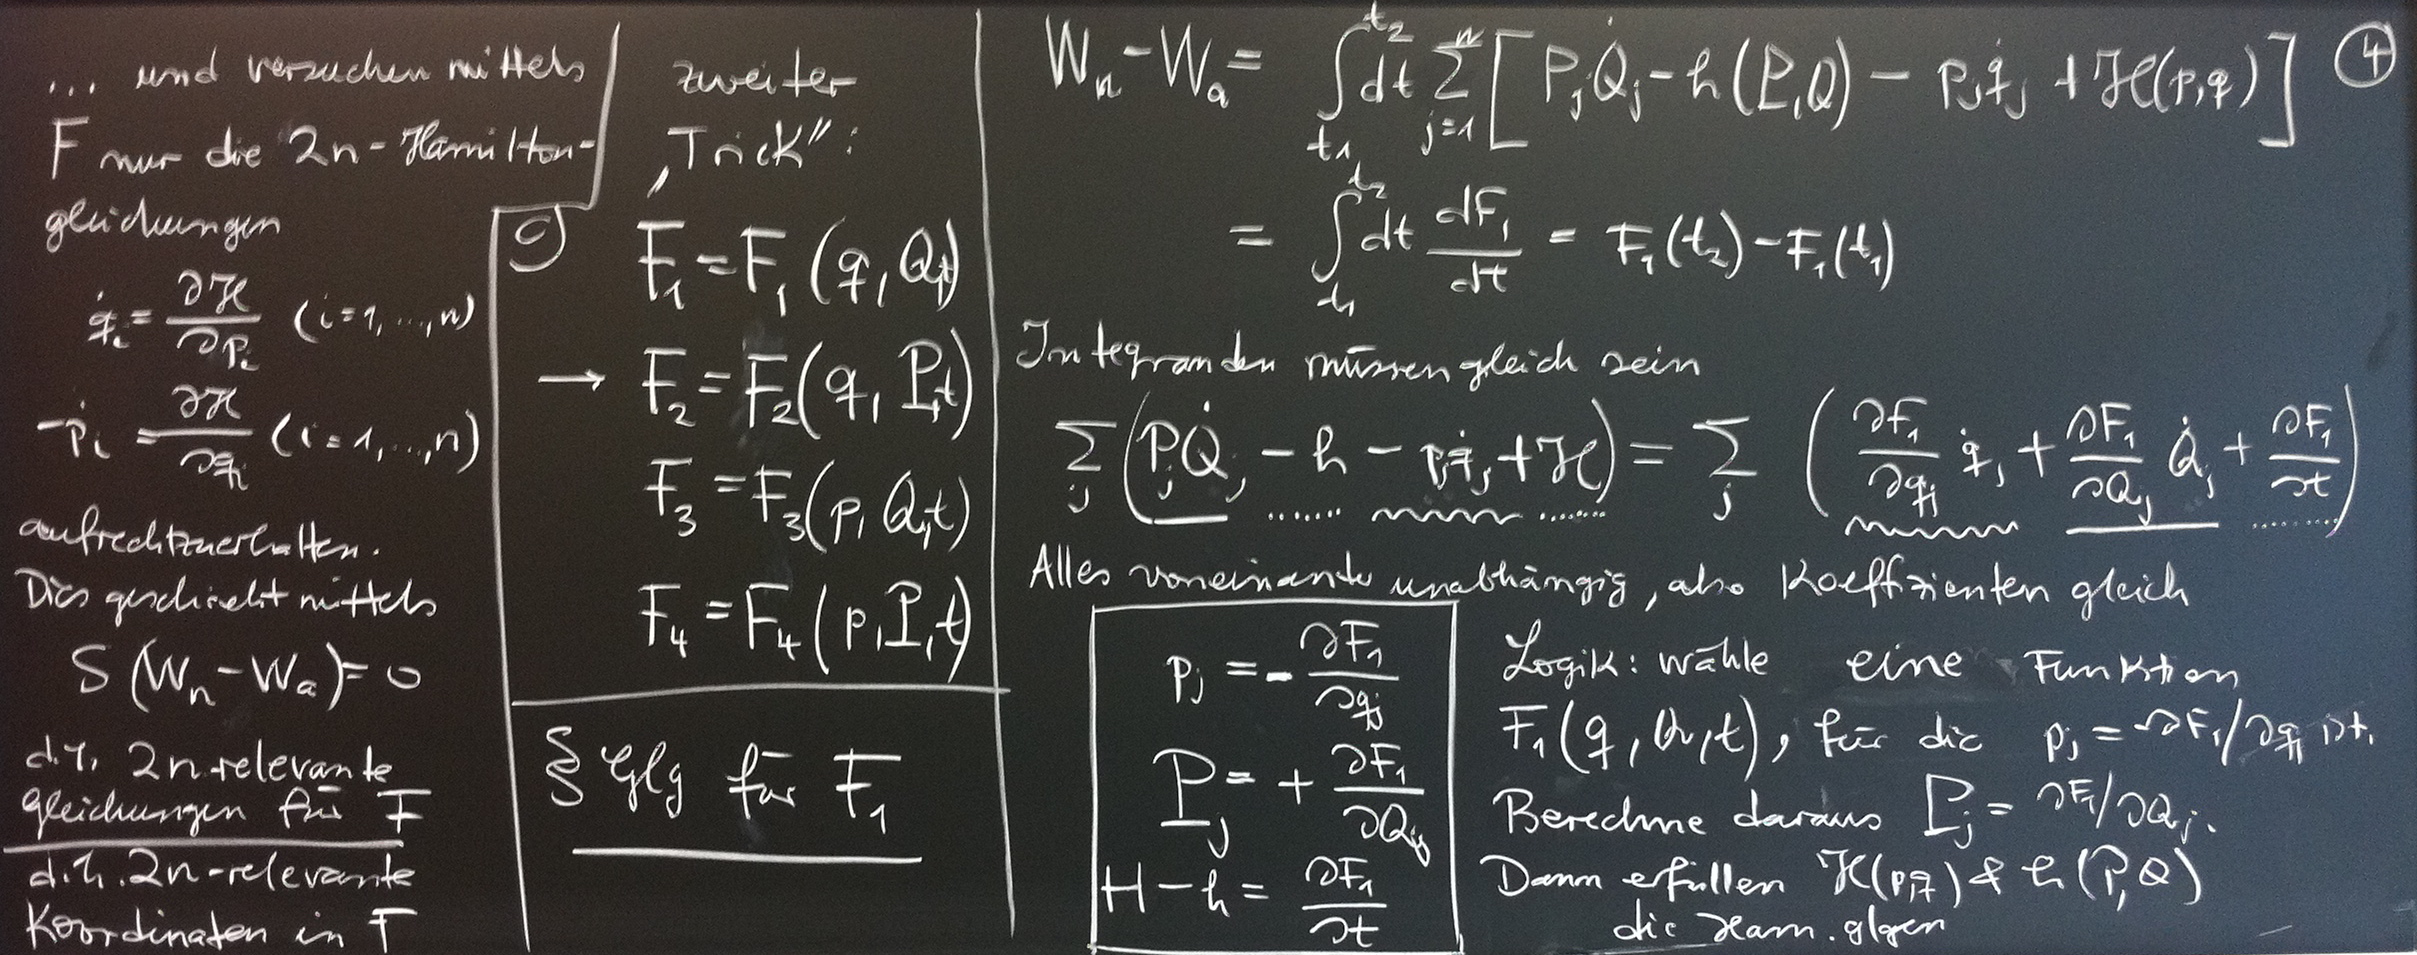 ... und versuchen mittels
F nur die 2n-Hamilton-
gleichungen
q̇ᵢ = ∂ℋ/∂pᵢ (i=1,...,n)
-ṗᵢ = ∂ℋ/∂qᵢ (i=1,...,n)
aufrechtzuerhalten.
Dies geschieht mittels
δ(Wₙ-Wₐ)=0
d.h. 2n-relevante
gleichungen für F
d.h. 2n-relevante
Koordinaten in F
zweiter
„Trick":
c)
F₁ = F₁(q, Q,t)
→ F₂ = F₂(q, P,t)
F₃ = F₃(p, Q,t)
F₄ = F₄(p, P,t)
§ Glg für F₁
Wₙ-Wₐ = ∫_{t₁}^{t₂} dt Σ_{j=1}^{n} [PⱼQ̇ⱼ - h(P,Q) - pⱼq̇ⱼ + ℋ(p,q)] ④
= ∫_{t₁}^{t₂} dt dF₁/dt = F₁(t₂) - F₁(t₁)
Integranden müssen gleich sein
Σⱼ (PⱼQ̇ⱼ - h - pⱼq̇ⱼ + ℋ) = Σⱼ (∂F₁/∂qⱼ q̇ⱼ + ∂F₁/∂Qⱼ Q̇ⱼ + ∂F₁/∂t)
Alles voneinander unabhängig, also Koeffizienten gleich
pⱼ = - ∂F₁/∂qⱼ
Pⱼ = + ∂F₁/∂Qⱼ
H - h = ∂F₁/∂t
Logik: wähle eine Funktion
F₁(q, Q,t), für die pⱼ = -∂F₁/∂qⱼ ist.
Berechne daraus Pⱼ = ∂F₁/∂Qⱼ.
Dann erfüllen ℋ(p,q) & h(P,Q)
die Ham. glgen